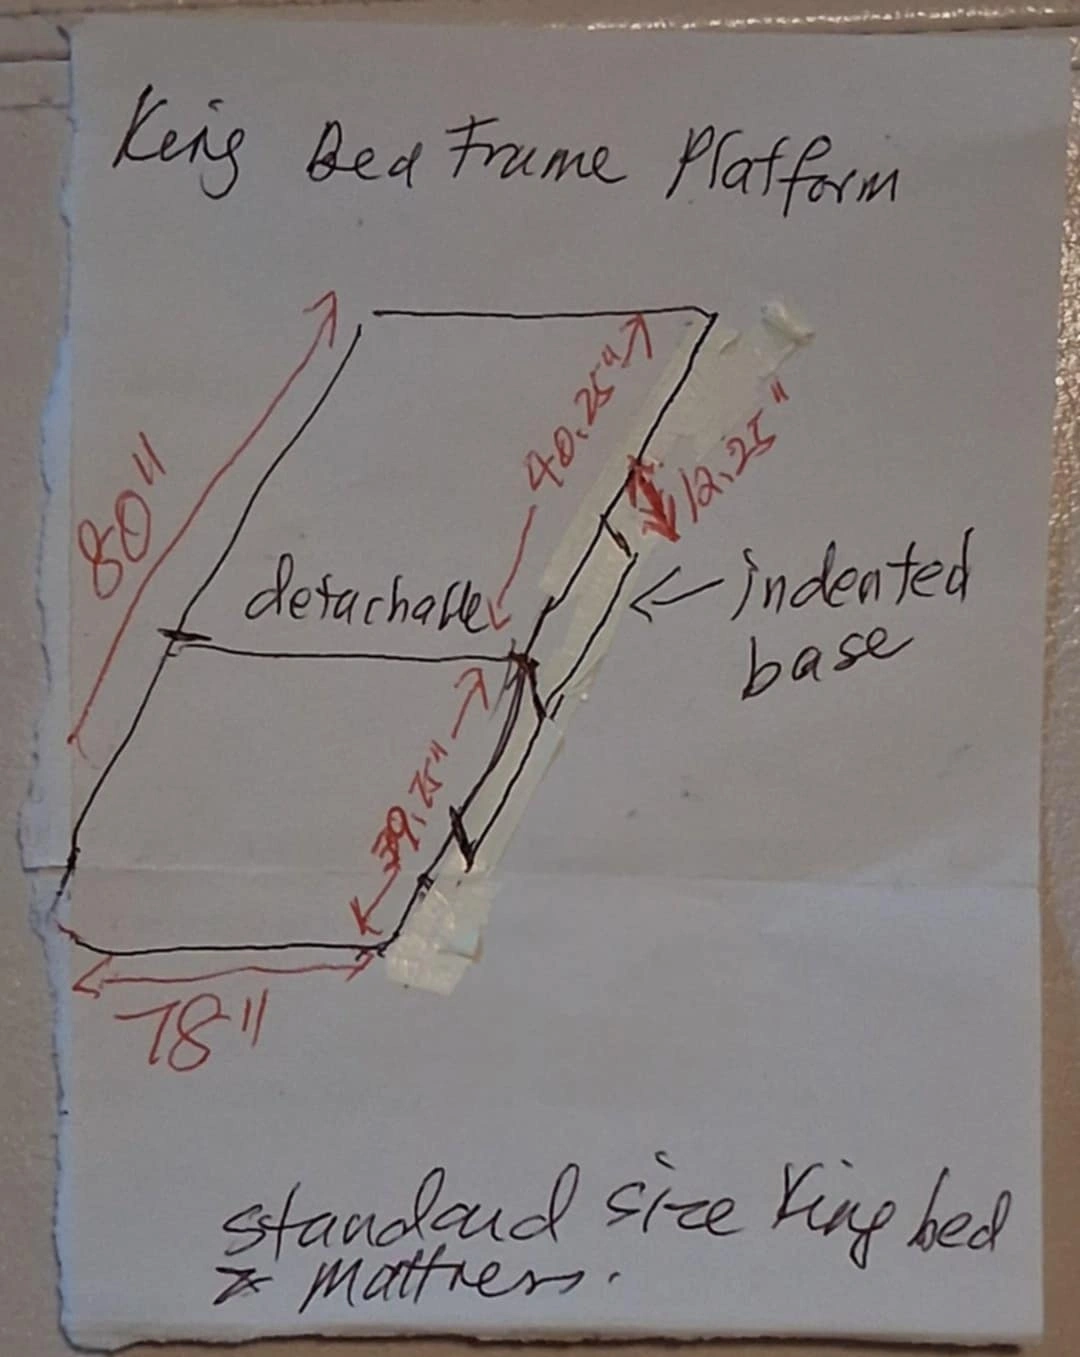 King Bed Frame Platform
40.25"
12.25"
80"
detachable
indented
base
39.75"
78"
standard size King bed
& mattress.